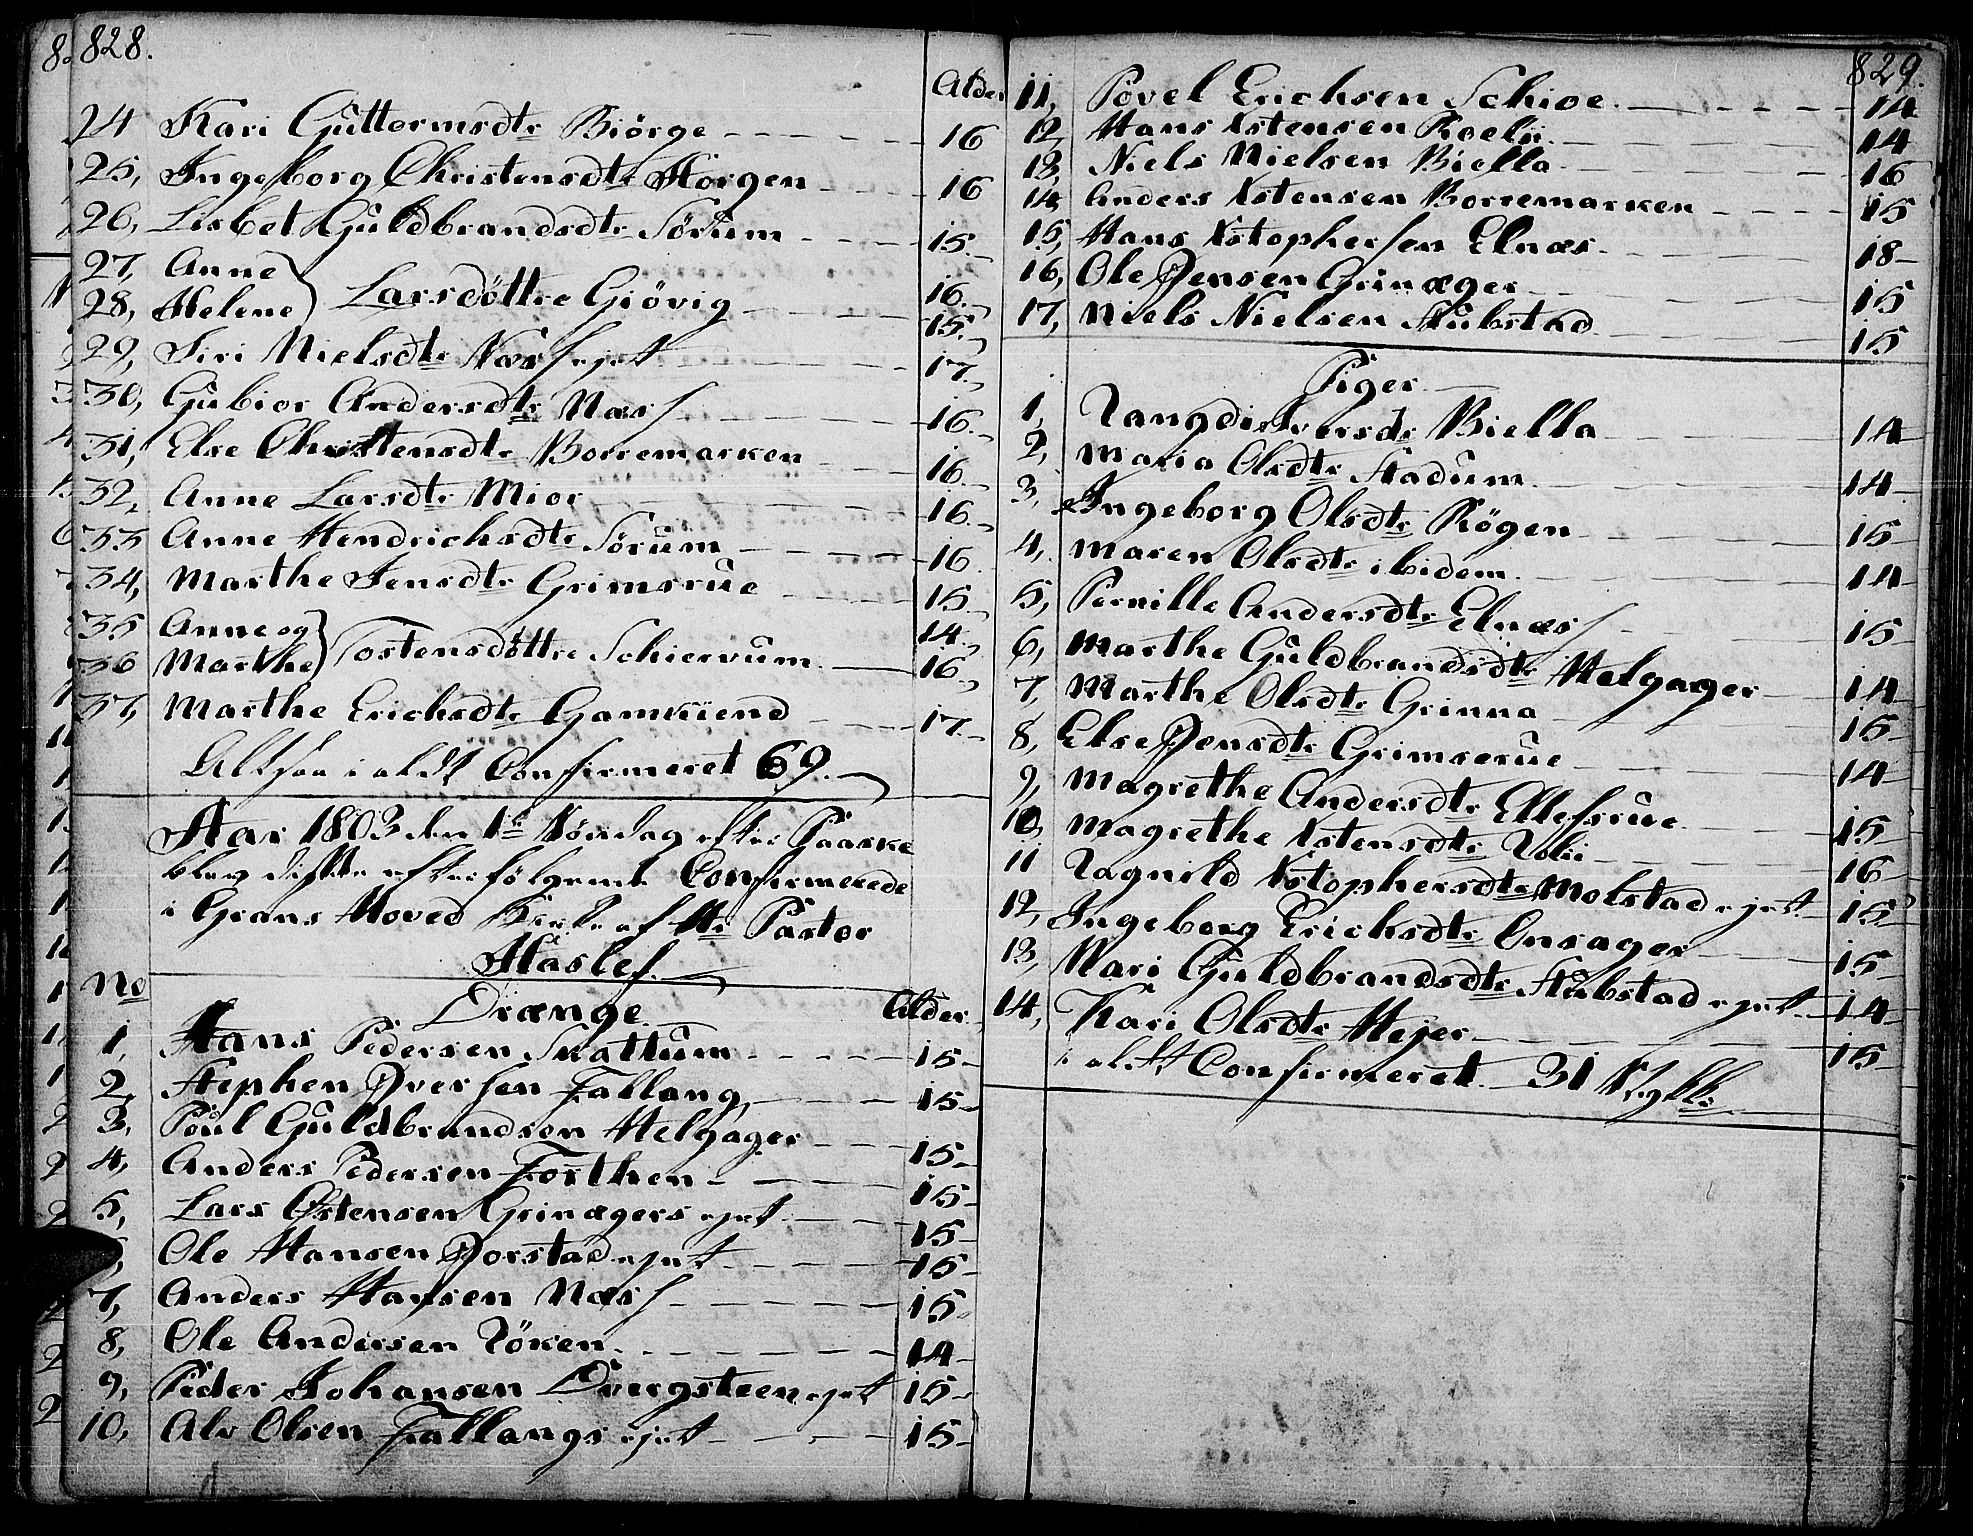 828.
Alder
24 Kari Guttormsdtr Biörge 16
25, Ingeborg Christensdtr Horgen 16
26, Lisbet Guldbrandsdtr Sørum 15.
27, Anne
28, Helene } Larsdöttre Giövig 16. 15.
29, Siri Nielsdtr Næss ejet 17.
30, Gubiør Andersdtr Næss 16.
31, Else Christensdtr Borremarken 16.
32, Anne Larsdtr Mior 16.
33 Anne Hendrichsdtr Sørum 16.
34, Marthe Jensdtr Grimsrue 15.
35 Anne og 14.
36 Marthe } Tostensdøttre Schiervum 16.
37, Marthe Erichsdtr Gamkiend 17.
Altsaa i aldt Confirmeret 69.
Aar 1803 den 1te Söndag efter Paaske
blev disse efterfölgende Confirmerede
i Grans Hoved Kirke af Hr Pastor
Haslef.
No Drænge Alder
1, Hans Pedersen Skattum 15
2, Stephen Iversen Fallang 15
3, Poul Guldbrandsen Helgager 15
4, Anders Pedersen Forthen 15
5, Lars Østensen Grinagers ejet 15
Ole Hansen Jorstad ejet 15
7, Anders Hansen Næss 15
8, Ole Andersen Röken 14
9, Peder Johansen Dvergsteen ejet 15
10, Alv Olsen Fallangs ejet 15
829.
11, Povel Erichsen Schioe 14
12, Hans Xstensen Roelii 14
13, Niels Nielsen Biella 16
14, Anders Xstensen Borremarken 15
15, Hans Xstophersen Elnæs 18
16, Ole Jensen Grinager 15
17, Niels Nielsen Stubstad 15
Piger
1, Rangdi Iversdr Biella 14
2, Maria Olsdtr Stadum 14
3, Ingeborg Olsdtr Rögen 15
4, Maren Olsdtr ibidem 14
5, Pernille Andersdtr Elnæs 15
6, Marthe Guldbrandsdtr Helgager 14
7, Marthe Olsdtr Grinna 15
8, Else Jensdtr Grimserue 14
9, Magrethe Andersdtr Ellefsrue 15
10, Magrethe Xstensdtr 16
11 Ragnild Xstophersdtr Molstad ejet 15
12, Ingeborg Erichsdtr Onsager 15
13, Mari Guldbrandsdtr Stubstad ejet 14
14, Kari Olsdtr Heyer 15
i aldt Confirmeret 31 Stykker